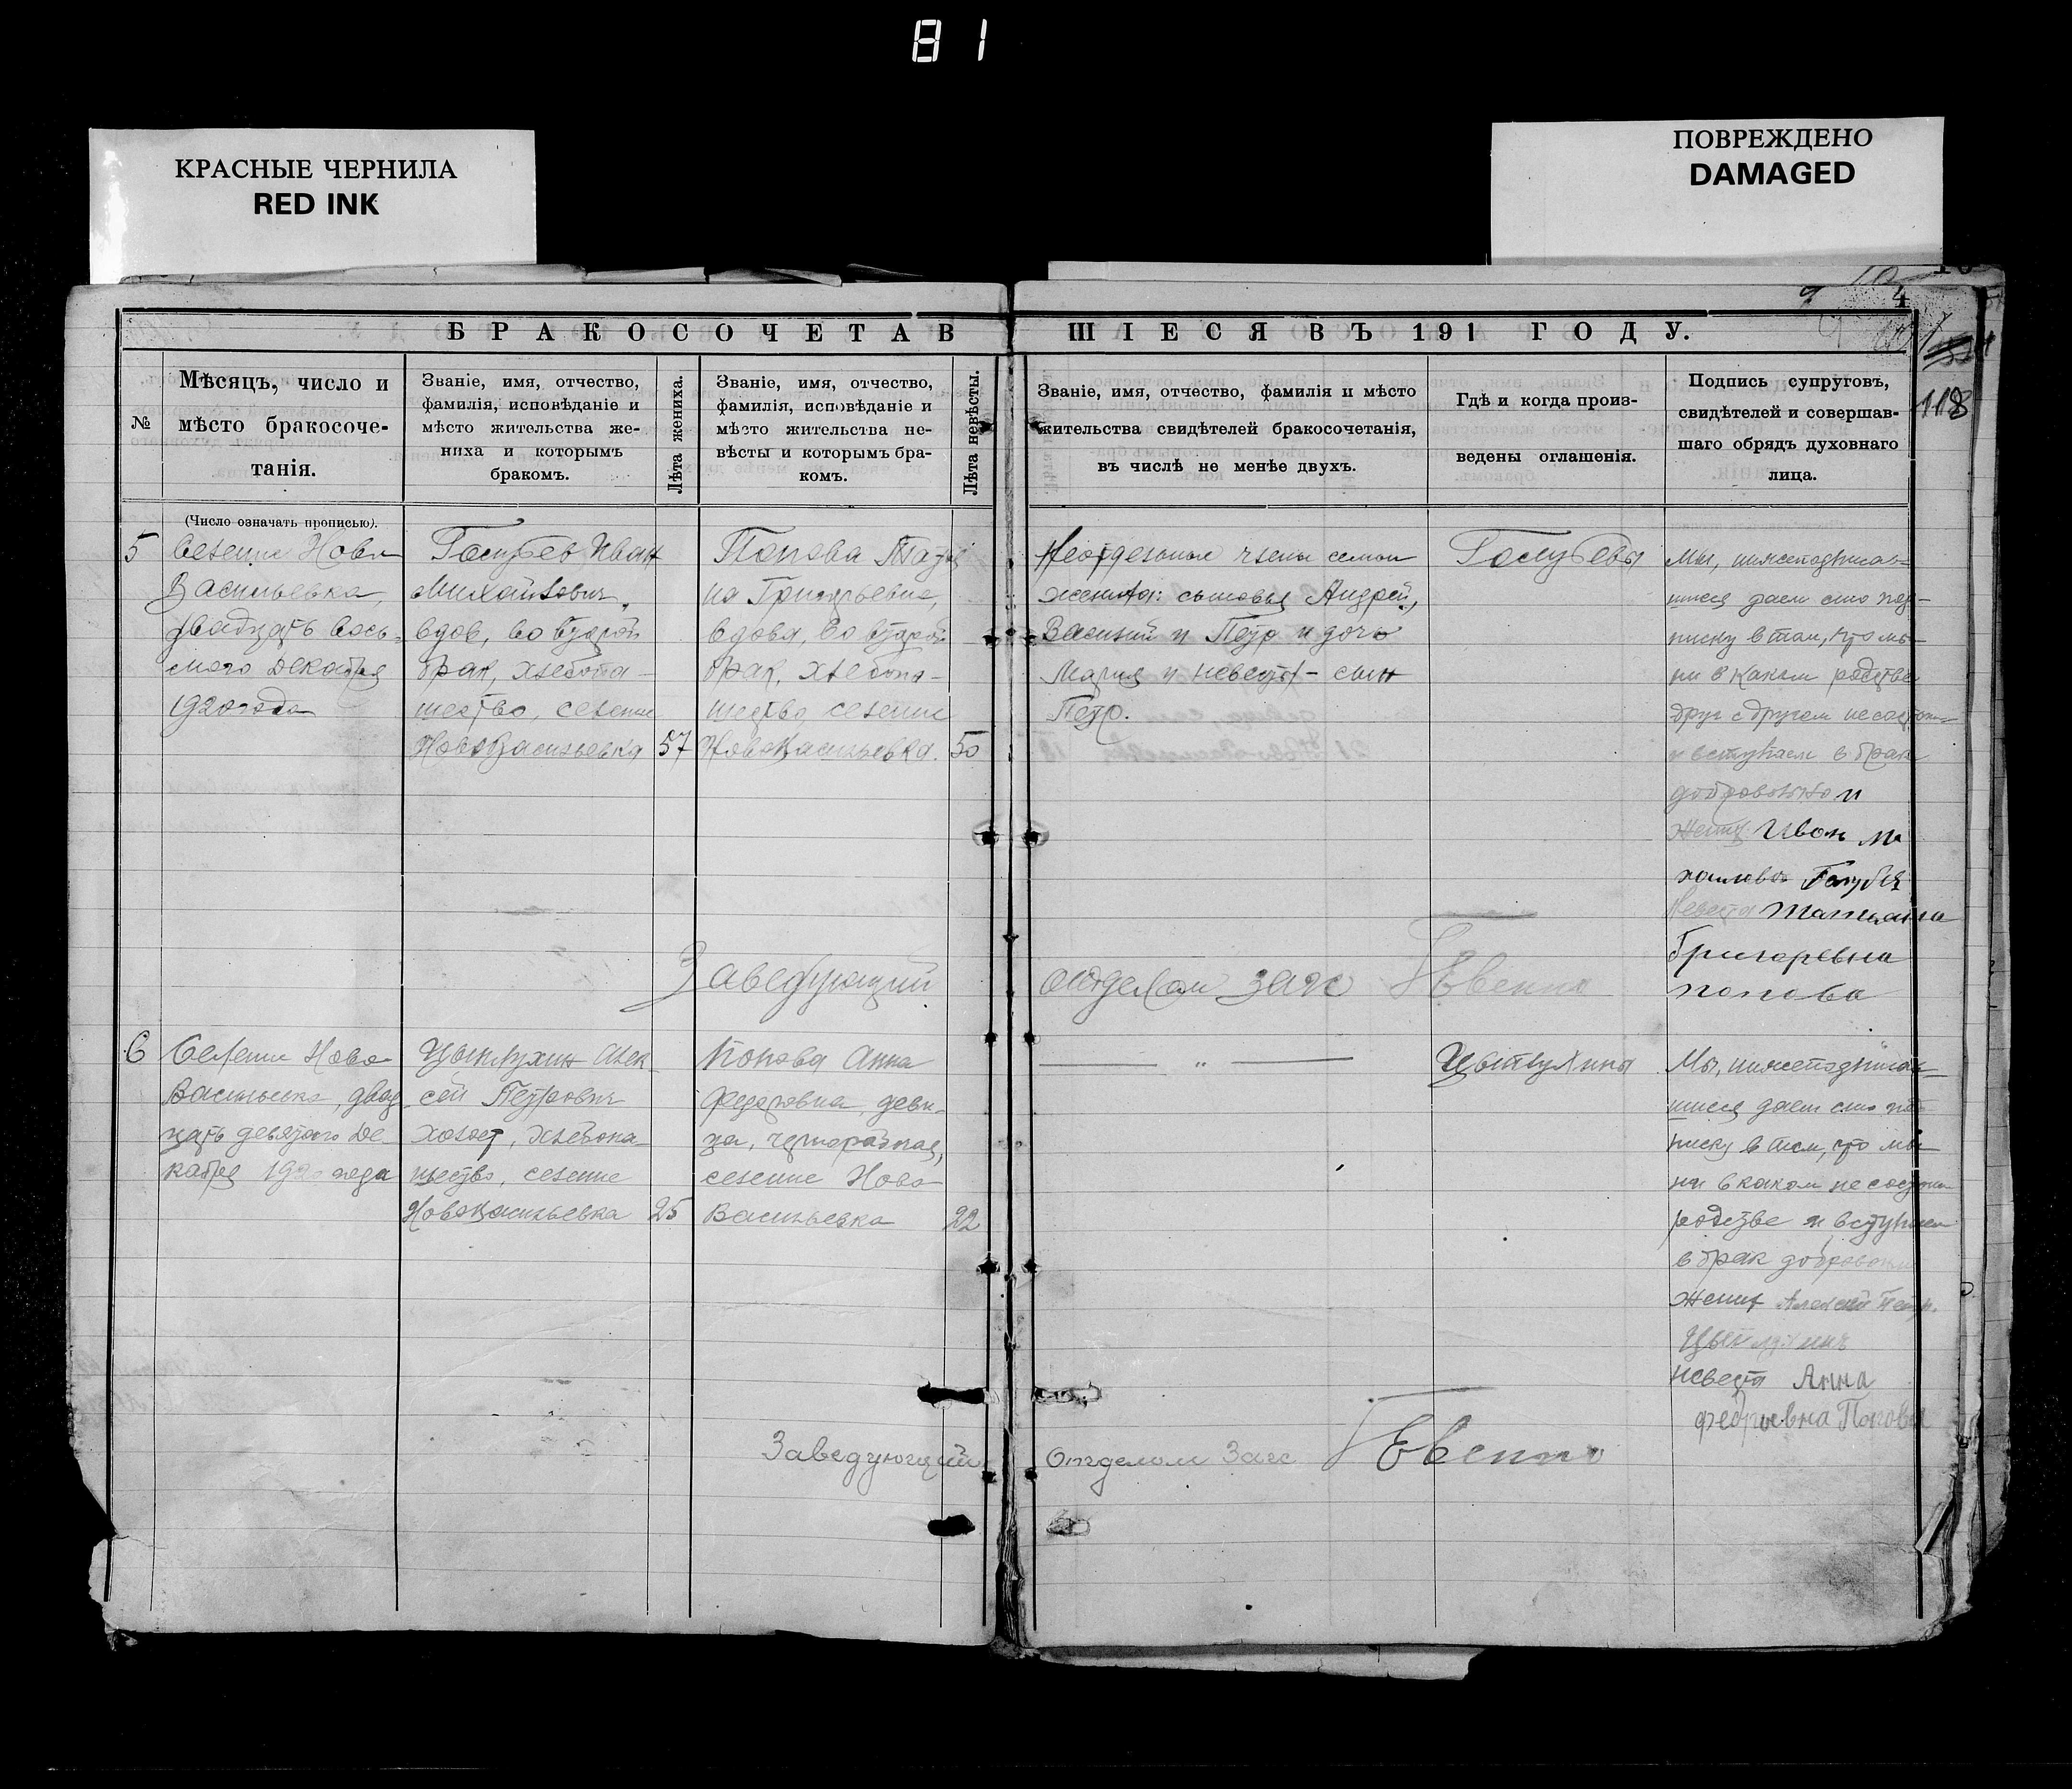 81
КРАСНЫЕ ЧЕРНИЛА
RED INK
ПОВРЕЖДЕНО
DAMAGED
4
118
БРАКОСОЧЕТАВ
ШІЕСЯ ВЪ 191 ГОДУ.
№
Мѣсяцъ, число и
мѣсто бракосоче-
танія.
Званіе, имя, отчество,
фамилія, исповѣданіе и
мѣсто жительства же-
ниха и которымъ
бракомъ.
Лѣта жениха.
Званіе, имя, отчество,
фамилія, исповѣданіе и
мѣсто жительства не-
вѣсты и которымъ бра-
комъ.
Лѣта невѣсты.
Званіе, имя, отчество, фамилія и мѣсто
жительства свидѣтелей бракосочетанія,
въ числѣ не менѣе двухъ.
Гдѣ и когда произ-
ведены оглашенія.
Подпись супруговъ,
свидѣтелей и совершав-
шаго обрядъ духовнаго
лица.
(Число означать прописью).
5
Селение Ново
Васильевка,
двадцать вось-
мого декабря
1920 года
Голубев Иван
Михайлович,
вдов, во второй
брак, хлебопа-
шество, селение
Нововасильевка 57
Попова Татья
на Григорьевна,
вдова, во второй
брак, хлебопа-
шество селение
Нововасильевка. 50
Неотдельные члены семьи
жениха: сыновья Андрей,
Василий и Петр и дочь
Мария и невесты - сын
Петр.
Голубевы
Мы, нижеподписав-
шиеся даем сию под-
писку в том, что мы
ни в каком родстве
друг с другом не состоим
и вступаем в брак
добровольно и
жених Иван Ми
хаилович Голубев
Невеста Татиана
Григоревна
Попова
Заведующий
отделом загс
6
Селение Ново
Васильевка, двад
цать девятого де-
кабря 1920 года
Цыплухин Алек-
сей Петрович
холост, хлебопа-
шество, селение
Нововасильевка 25
Попова Анна
Федоровна, деви-
ца, чернорабочая,
селение Ново
Васильевка 22
— „ —
Мы, нижеподписав-
шиеся даем сию под-
писку в том, что мы
ни в каком не состоим
родстве и вступаем
в брак добровольно
жених Алексей Петр.
невеста Анна
Попова
Заведующий
отделом Загс